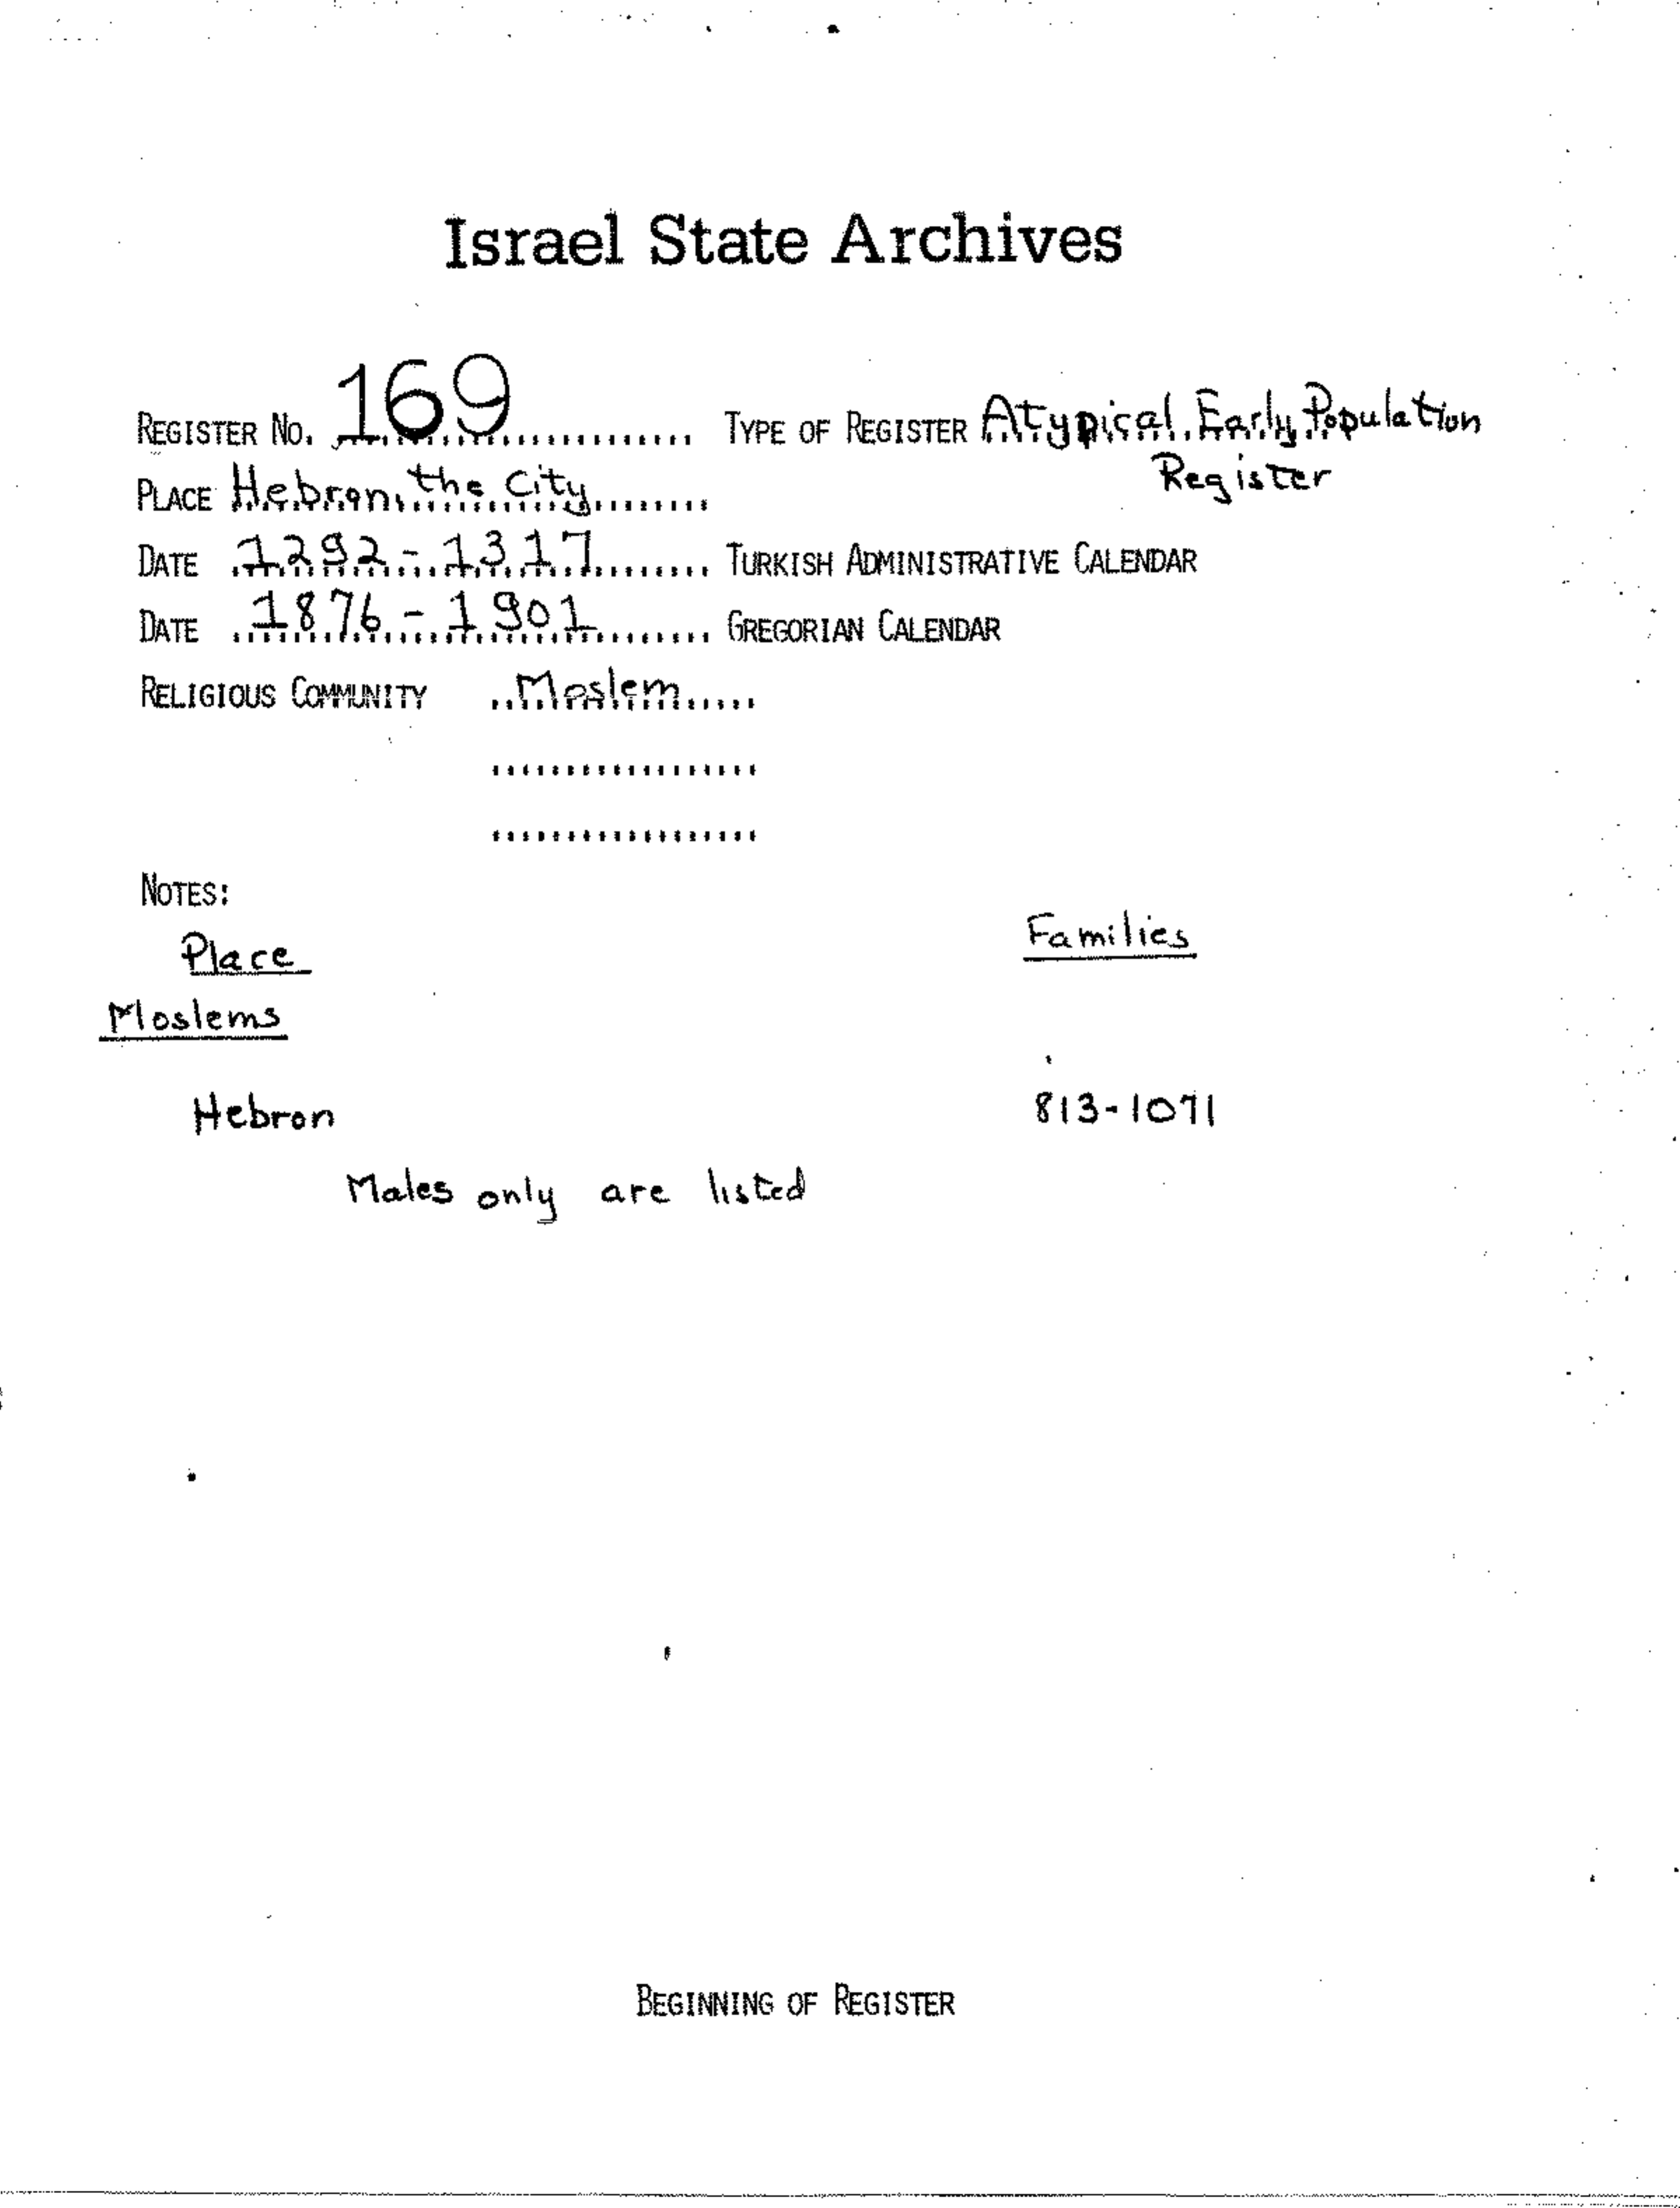 Israel State Archives
REGISTER NO. 169 TYPE OF REGISTER Atypical Early Population
Register
PLACE Hebron, the City
DATE 1292-1317 TURKISH ADMINISTRATIVE CALENDAR
DATE 1876-1901 GREGORIAN CALENDAR
RELIGIOUS COMMUNITY Moslem
NOTES:
Place Families
Moslems
Hebron 813-1071
Males only are listed
BEGINNING OF REGISTER